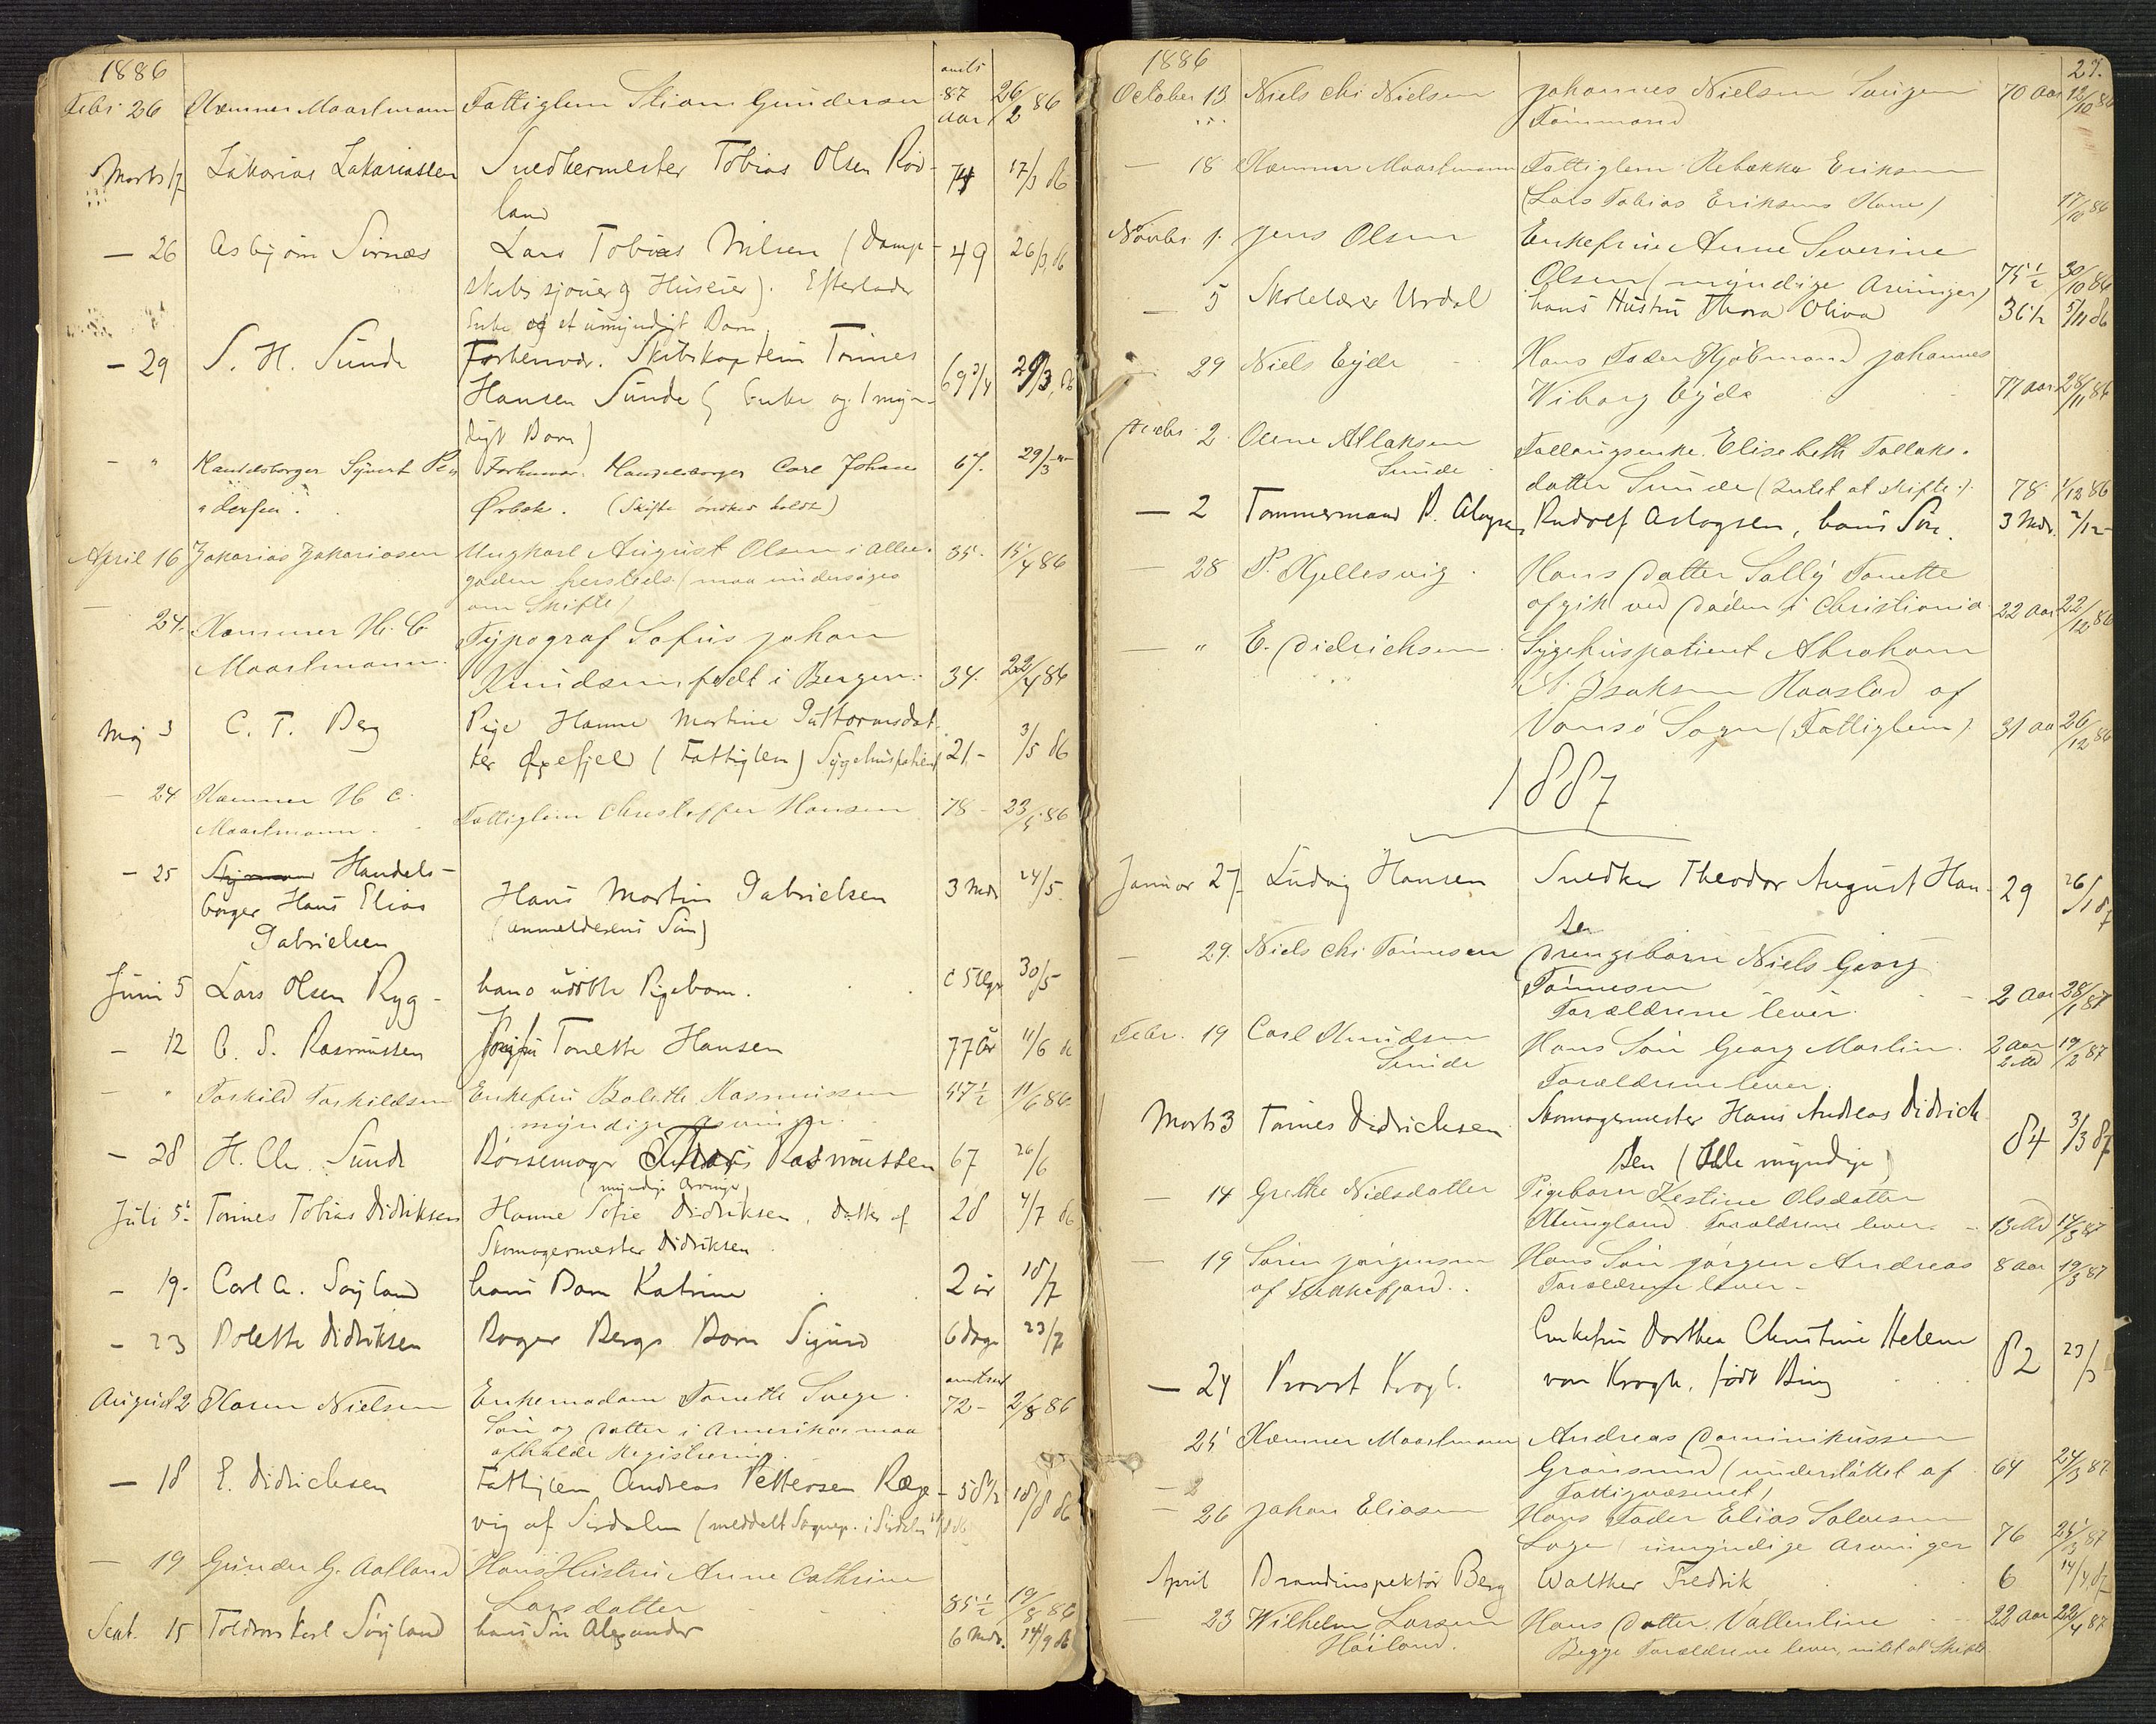 1886
Febr. 26 Kæmner Maarlmann Fattiglem Stian Gundersen omtr 87 Aar 26/2 86
Marts 17 Zakarias Zakariassen Snedkermester Tobias Olsen Rød- 74 17/3 86
land
— 26 Asbjørn Sirnæs Lars Tobias Nilsen (Damp- 49 26/3 86
skibssjouer og Huseier). Efterlader
Enke og et umyndigt Barn
— 29 S. H. Sunde Forhenvær. Skibskaptein Tønnes 69 3/4 29/3 86
Hansen Sunde (Enke og 1 myn-
digt Barn)
— " Handelsborger Sivert Pe- Forhenvær. Handelsborger Carl Johan 67. 29/3 —
dersen Ørbæk. (Skifte ønskes holdt)
April 16 Zakarias Zakariasen Ungkarl August Olsen i Allee- 35. 15/4 86
gaden hersteds (maa undersøges
om Skifte)
— 24. Kæmner H. C. Typograf Sofus Johan
Maarlmann. Knudsen født i Bergen. 34. 22/4 86
Maj 3 C. T. Berg Pige Hanne Martine Guttormsdat-
ter Øxefjeld (Fattiglem) Sygehuspatient 21 – 3/5 86
— 24 Kæmner H. C.
Maarlmann. Fattiglem Christoffer Hansen 78 – 23/5 86
— 25 Styrmand Handels-
borger Hans Elias Hans Martin Gabrielsen 3 Mdr 24/5.
Gabrielsen (Anmelderens Søn)
Juni 5 Lars Olsen Ryg – hans udøbte Pigebarn. c 5 Uger 30/5
— 12 C. S. Rasmussen Jomfru Tonette Hansen 77 År 11/6 86
— " Torkild Torkildsen Enkefru Bolette Rasmussen 57 1/2 11/6 86.
myndige Arvinger.
— 28 H. Chr. Sunde Børsemager Thor Rasmussen 67 26/6
(myndige Arvinger)
Juli 5. Tønnes Tobias Didriksen Hanne Sofie Didriksen, Datter af 28 4/7 86
Skomagermester Didriksen
— 19. Carl A. Søyland hans Barn Katrine 2 år 18/7
— 23 Bolette Didriksen Roger Bergs Barn Sigurd 6 Dage 23/7
August 2 Karen Nielsen Enkemadam Tonette Svege. omtrent 72 – 2/8 86
Søn og Datter i Amerika maa
afholde Registrering.
— 18 E. Didrichsen Fattiglem Andreas Pettersen Ræge- 58 1/2 18/8 86
vig af Sirdalen (meddelt Sognep. i Sirdalen
— 19 Gunder G. Aatland Hans Hustru Anne Cathrine
Larsdatter 35 1/2 19/8 86
Sept. 15 Toldroerskarl Søyland hans Søn Alexander 6 Mdr. 14/9 86
1886 27.
October 13 Niels Chr Nielsen Johannes Nielsen Saugen 70 Aar 12/10 86
Tømmermand
— 18 Kæmner Maarlmann Fattiglem Rebekka Eriksen
(Lars Tobias Eriksens Kone) 17/10 86
Novbr. 1. Jens Olsen Enkefrue Anne Severine
Olsen (myndige Arvinger) 75 1/2 30/10 86
— 5 Skolelærer Urdal hans Hustru Thora Oliva 36 1/2 5/11 86
29 Niels Eyde Hans Fader Kjøbmand Johannes
Wiborg Eyde 77 Aar 28/11 86
Decbr. 2 Ollaksen Fallaugsenke Elisebeth Tollaks-
Sunde datter Sunde (Intet at skifte). 78 1/12 86
— 2 Tømmermand R. Aslagsen Rudolf Aslagsen, hans Søn. 3 Mdr. 2/12 –
— 28 P. Kjellesvig. Hans Datter Sally Tonette
afgik ved Døden i Christiania 22 Aar 22/12 86
— " E. Didrichsen. Sygehuspatient Abraham
A. Isaksen Haastad af
Vansø Sogn (Fattiglem). 31 Aar 26/12 86
1887
Januar 27 Ludvig Hansen Snedker Theodor August Han- 29 26/1 87
sen
— 29. Niels Chr Tønnesen Drengebarn Niels Georg
Tønnesen 2 Aar 28/1 87
Forældrene lever.
Febr. 19 Carl Knudsen Hans Søn Georg Martin. 2 Aar 2 Md 19/2 87
Sunde Forældrene lever.
Marts 3 Tønnes Didrichsen Skomagermester Hans Andreas Didrich-
sen (Alle myndige) 84 3/3 87
— 14 Grethe Nielsdatter Pigebarn Kestine Olsdatter
Klungland. Forældrene lever – 13 Md 14/3 87
— 19 Søren Jørgensen Hans Søn Jørgen Andreas 8 Aar 19/3 87
af Fedkefjord. Forældrene lever –
Enkefru Dorthea Christine Helene
— 24 Provst Krogh. von Krogh, født Bing 82 23/3
25 Kæmner Maarlmann Andreas Dominikussen
Grønsund (understøttet af 64 24/3 87
Fattigvæsenet)
— 26 Johan Eliasen Hans Fader Elias Salvesen
Lage (umyndige Arvinger 76 25/3 87
April Brandinspektør Berg Walther Fredrik 6 14/4 87
— 23 Wilhelm Larsen Hans Datter Vallentine 22 Aar 22/4 87
Høiland. Begge Forældrene lever, intet at Skifte